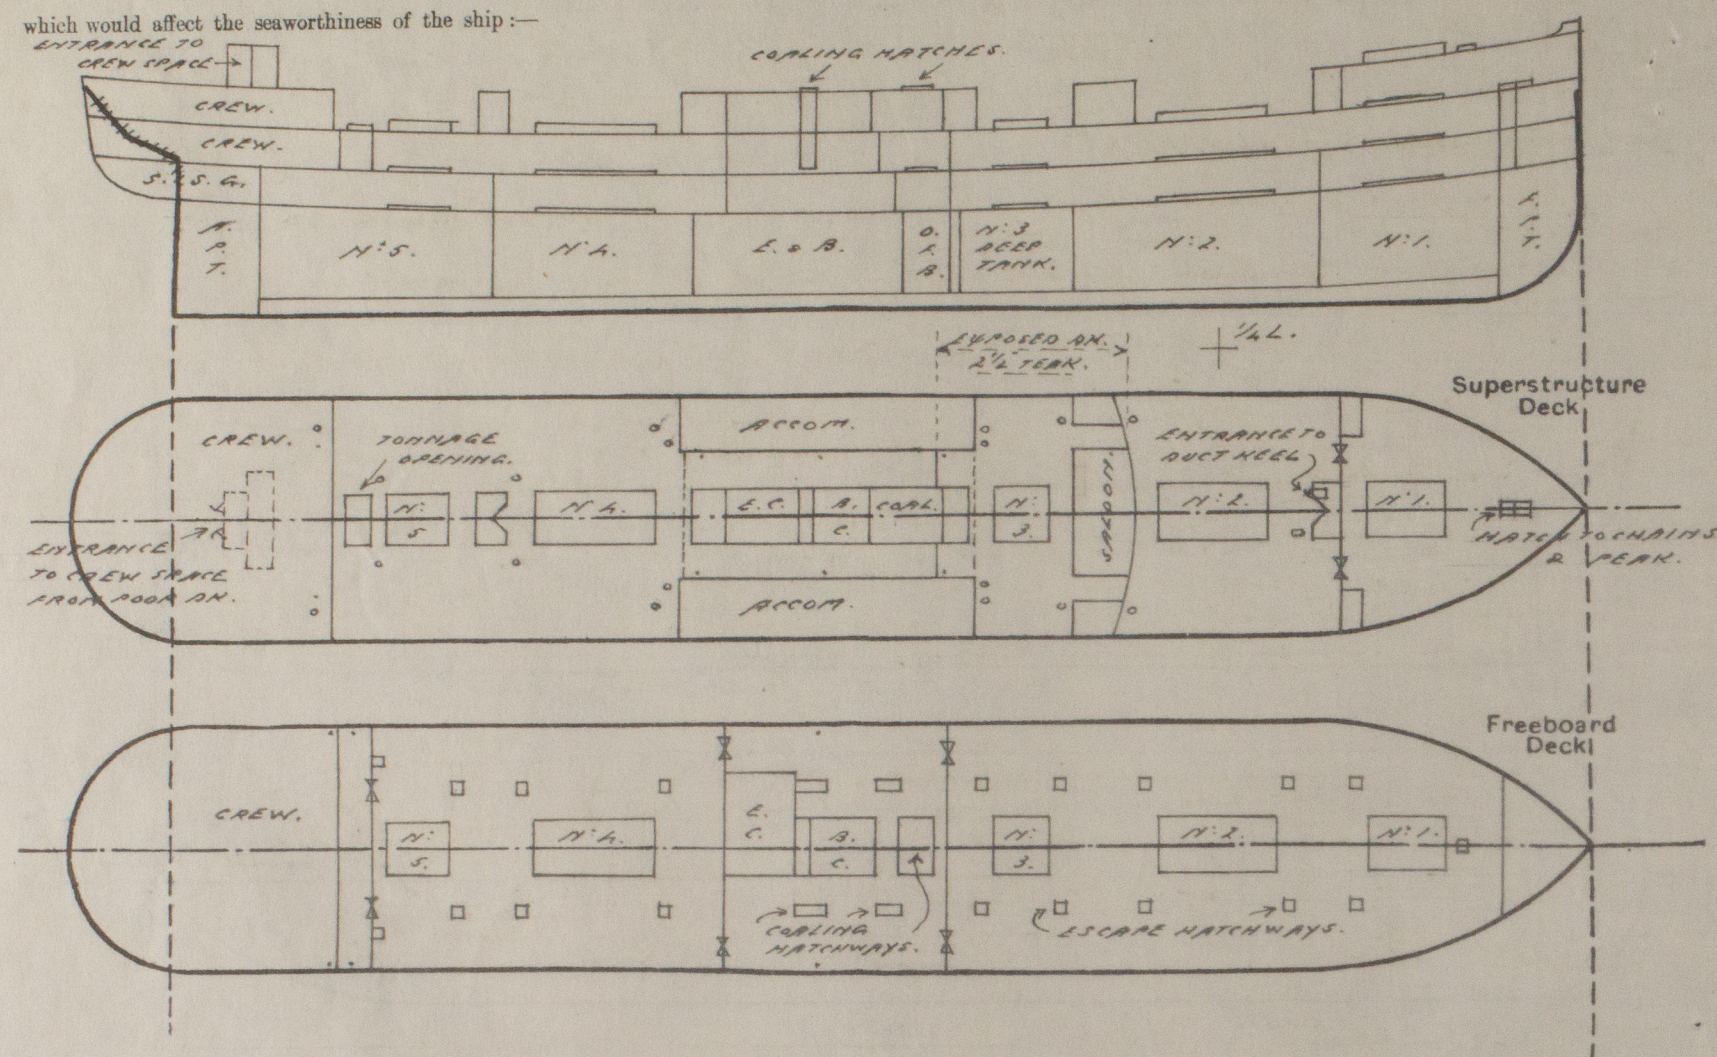 which would affect the seaworthiness of the ship :—
ENTRANCE TO
CREW SPACE
COALING HATCHES.
CREW.
CREW.
S. & S. G.
A.
P.
T.
Nº 5.
Nº 4.
E. & B.
O.
F.
B.
Nº 3
DEEP
TANK.
Nº 2.
Nº 1.
F.
P.
T.
EXPOSED DK.
2½" TEAK.
¼ L.
Superstructure
Deck
CREW.
TONNAGE
OPENING.
ACCOM.
ENTRANCE TO
DUCT KEEL
Nº
5
Nº 4.
E. C.
B.
C.
COAL.
Nº
3.
SALOON.
Nº 2.
Nº 1.
HATCH TO CHAINS
& PEAK.
ENTRANCE
TO CREW SPACE
FROM POOP DK.
ACCOM.
Freeboard
Deck
CREW.
Nº
5.
Nº 4.
E.
C.
B.
C.
Nº
3.
Nº 2.
Nº 1.
COALING
HATCHWAYS.
ESCAPE HATCHWAYS.